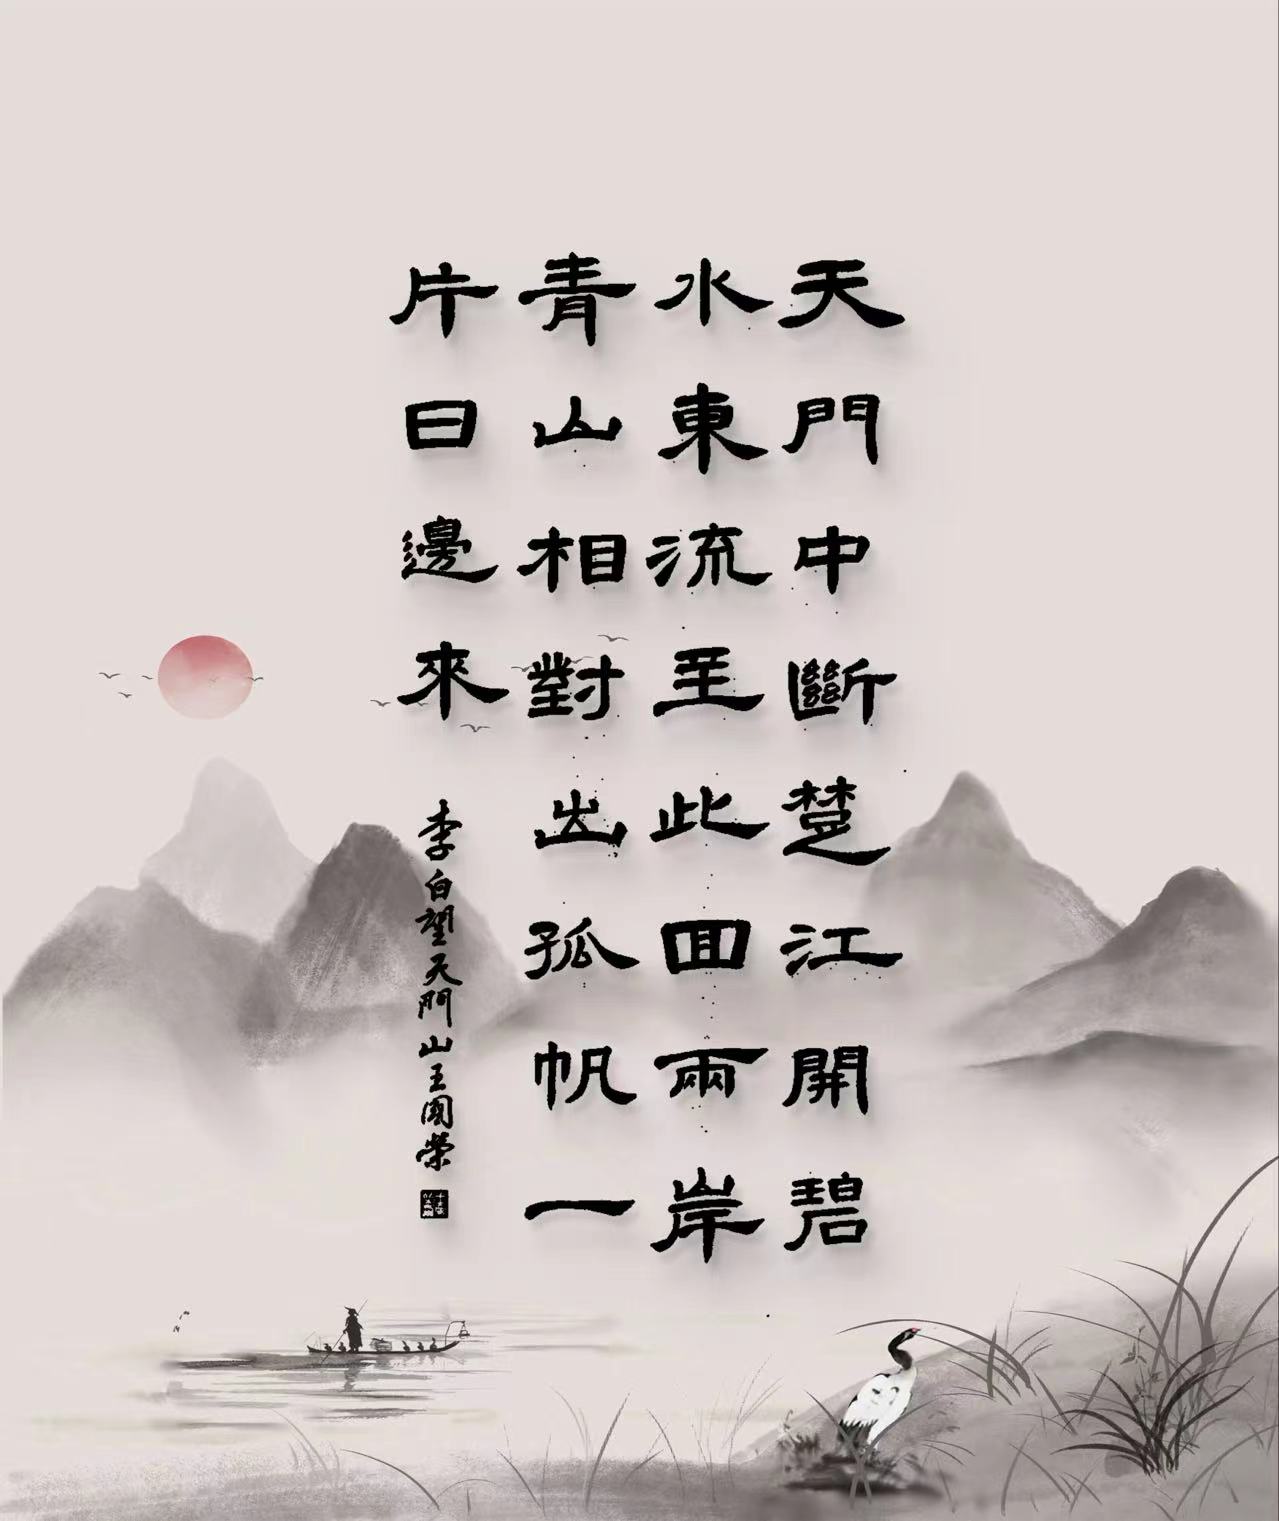 天門中斷楚江開碧
水東流至此回兩岸
青山相對出孤帆一
片日邊來
李白望天門山王國榮